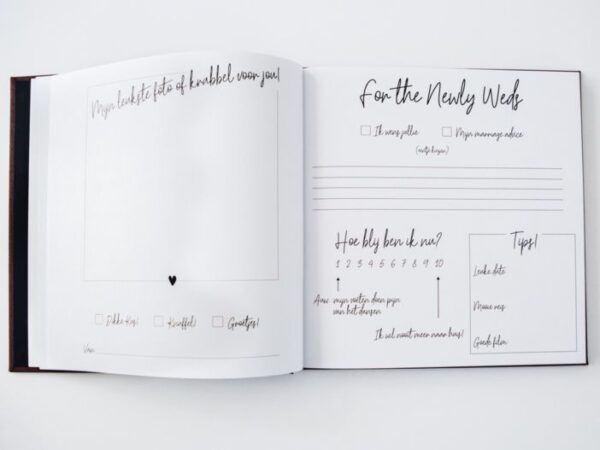 Mijn leukste foto of knabbel voor jou!
Dikke kus! Knuffel! Groetjes!
Van:
For the Newly Weds
Ik wens jullie Mijn marriage advice
Hoe blij ben ik nu?
1 2 3 4 5 6 7 8 9 10
Auw, mijn voeten doen pijn
van het dansen
Ik wil nooit meer naar huis!
Tips!
Leuke date
Mooie reis
Goede film